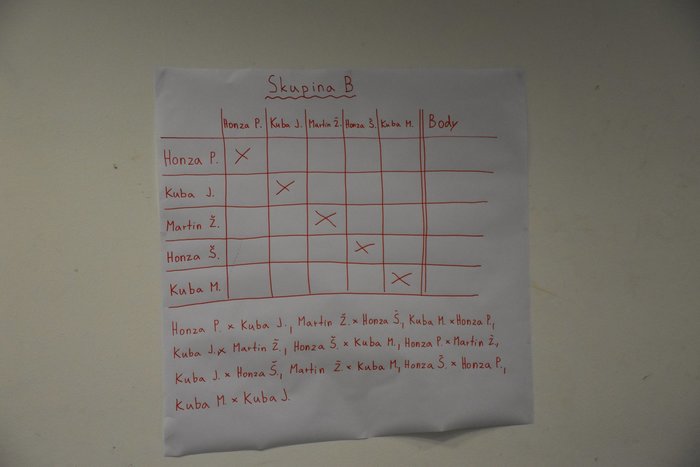 Skupina B
Honza P. Kuba J. Martin Ž. Honza Š. Kuba M. Body
Honza P.
Kuba J.
Martin Ž.
Honza Š.
Kuba M.
Honza P. × Kuba J., Martin Ž. × Honza Š, Kuba M. × Honza P.,
Kuba J. × Martin Ž., Honza Š. × Kuba M., Honza P. × Martin Ž,
Kuba J. × Honza Š., Martin Ž. × Kuba M, Honza Š. × Honza P.,
Kuba M. × Kuba J.